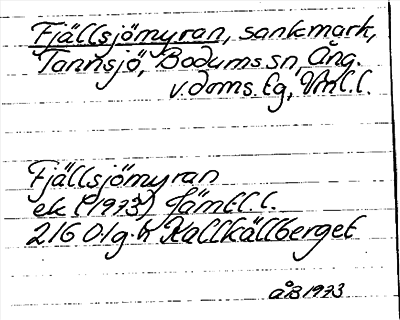 Fjällsjömyran, sankmark,
Tannsjö, Bodums sn, Ång.
v. doms. lg, Vml. l.
Fjällsjömyran
ek (1973) Jämtl. l.
216 O lg. fr Kallkällberget
ÅB 1973